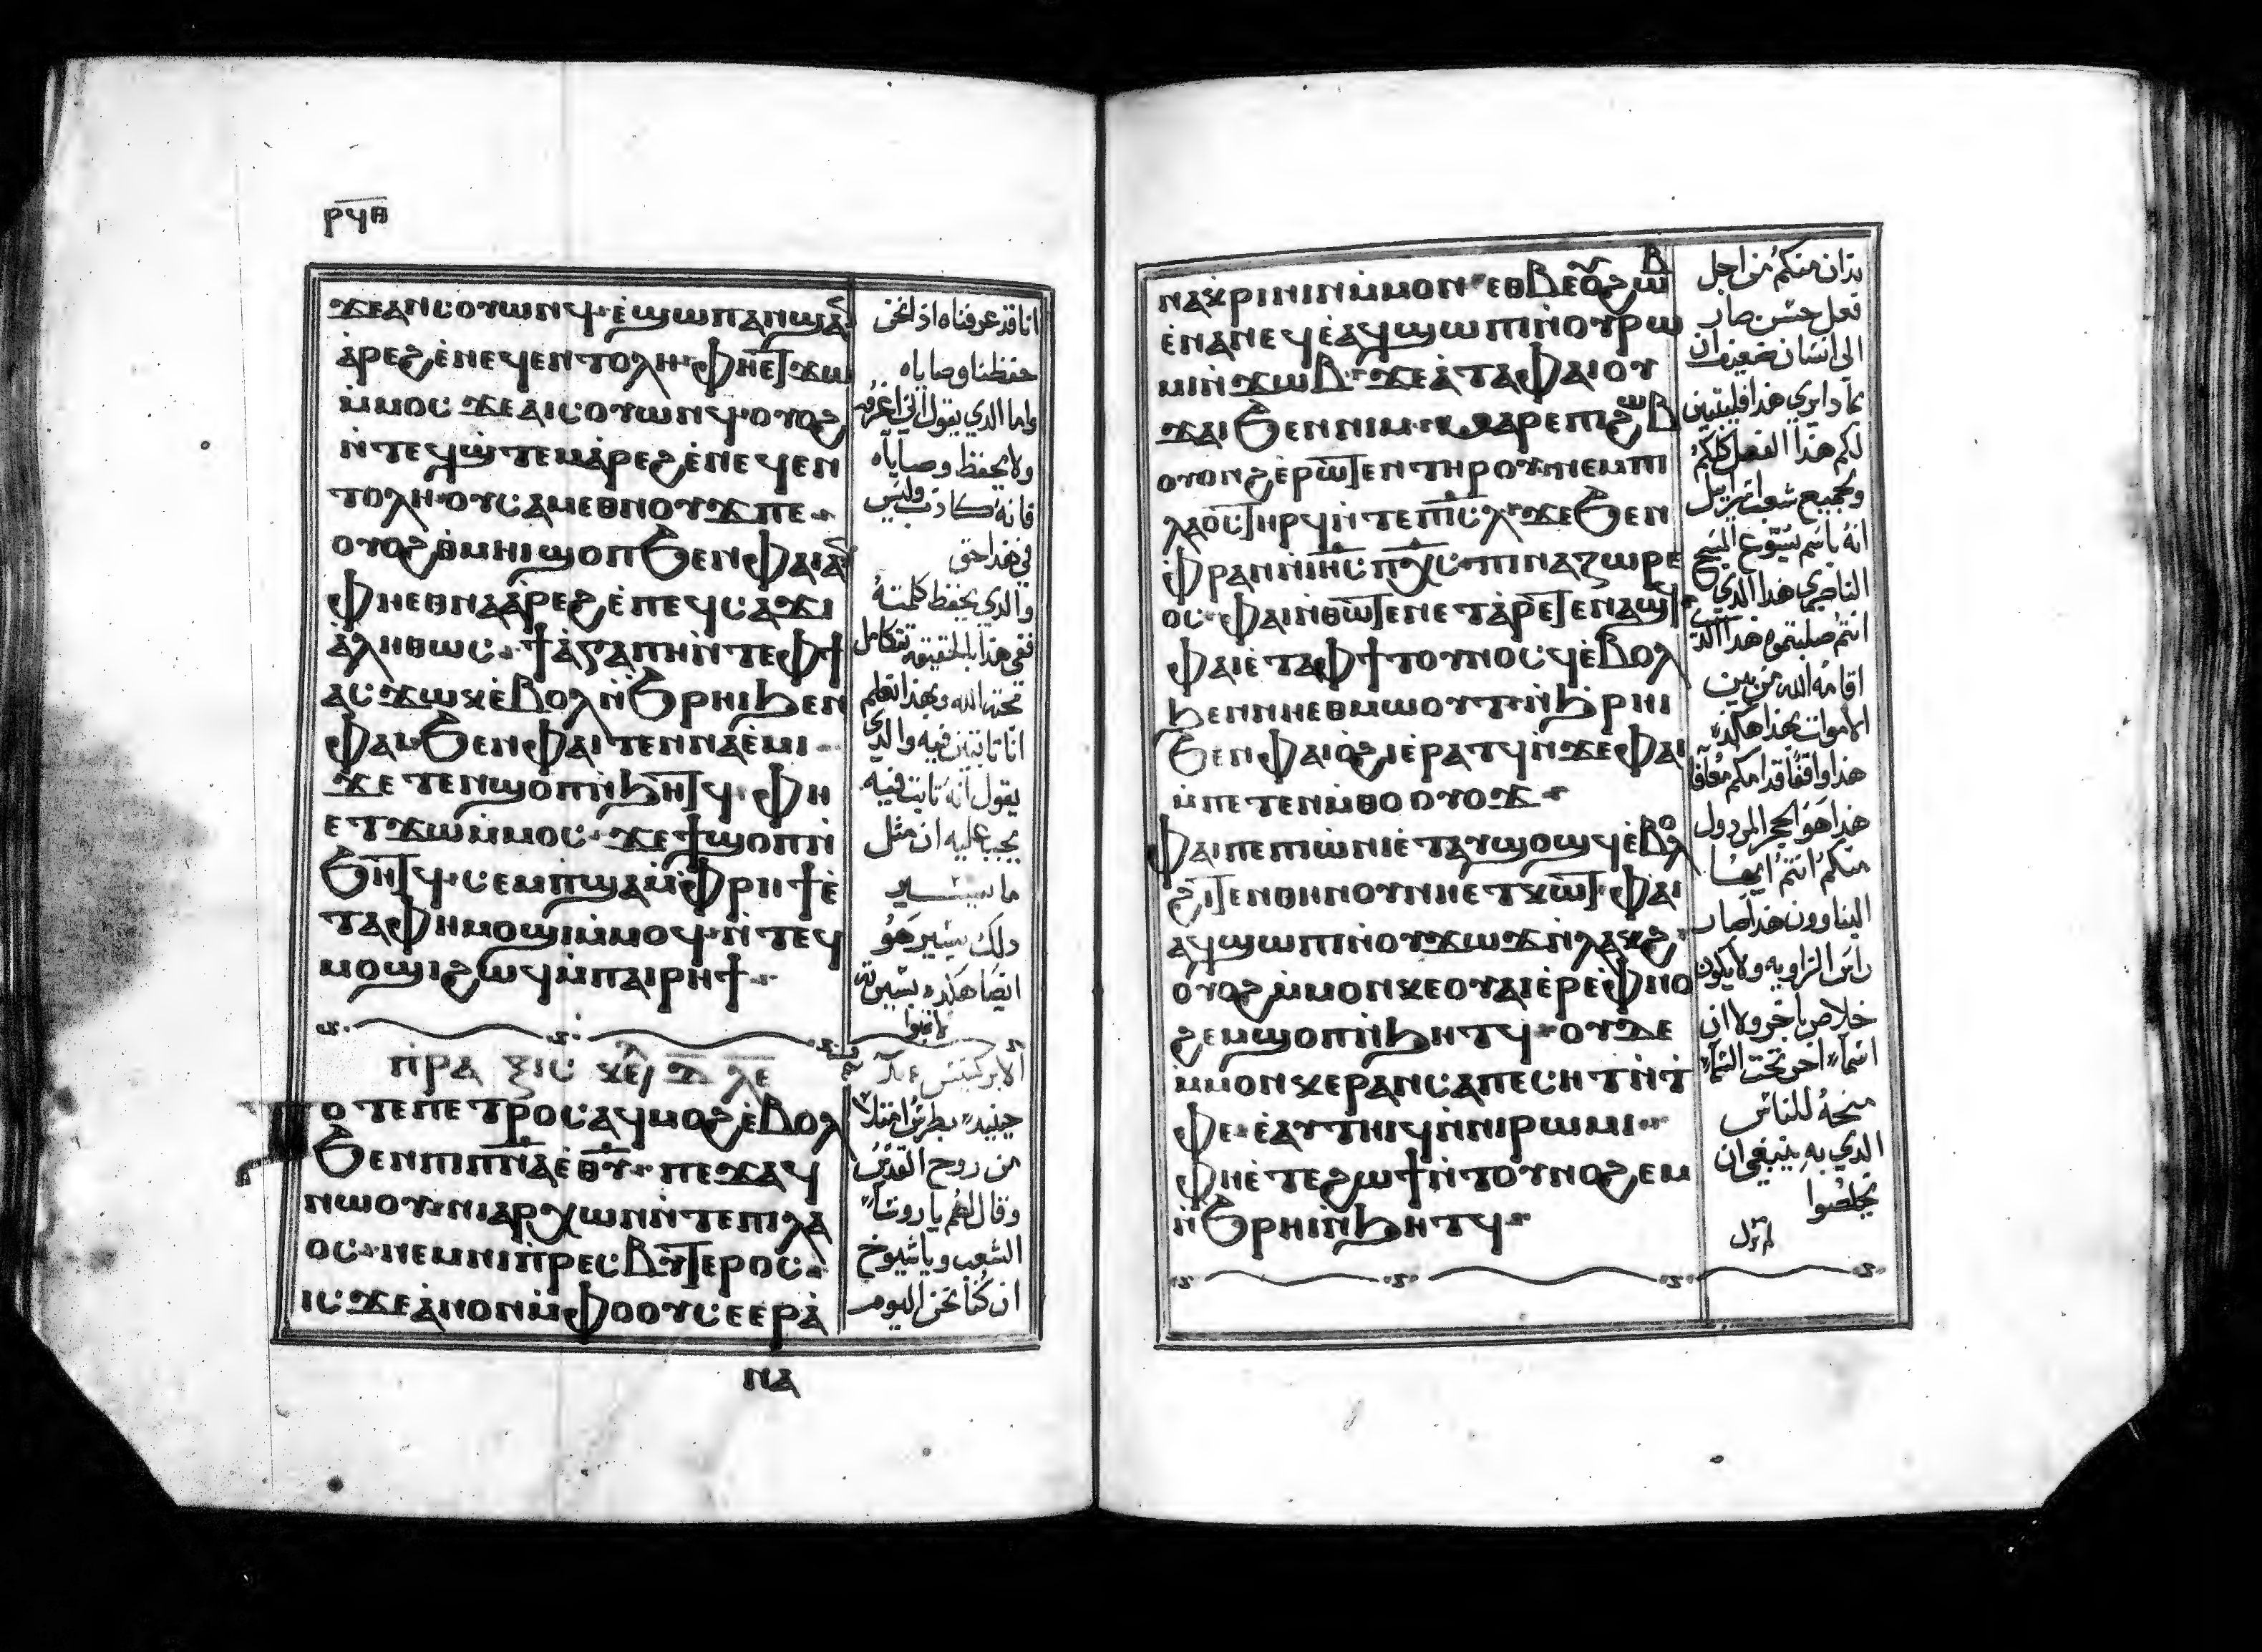 ⲣϥⲑ
ϫⲉⲁⲛⲥⲟⲩⲱⲛϥ· ⲉ̀ϣⲱⲡⲁⲛϣⲁⲛ
ⲁ̀ⲣⲉϩ ⲉ̀ⲛⲉϥⲉⲛⲧⲟⲗⲏ· ⲫⲏⲉⲧϫⲱ
ⲙ̀ⲙⲟⲥ ϫⲉⲁⲓⲥⲟⲩⲱⲛϥ· ⲟⲩⲟϩ
ⲛ̀ⲧⲉϥϣ̀ⲧⲉⲙⲁ̀ⲣⲉϩ ⲉ̀ⲛⲉϥⲉⲛ
ⲧⲟⲗⲏ· ⲟⲩⲥⲁⲙⲉⲑⲛⲟⲩϫ ⲡⲉ··
ⲟⲩⲟϩ ⲑ̀ⲙⲏⲓ ϣⲟⲡ ϧⲉⲛⲫⲁⲓⲁⲛ
ⲫⲏⲉⲑⲛⲁⲁ̀ⲣⲉϩ ⲉ̀ⲡⲉϥⲥⲁϫⲓ
ⲁ̀ⲗⲏⲑⲱⲥ· ϯⲁ̀ⲅⲁⲡⲏ ⲛ̀ⲧⲉⲫϯ
ⲁⲥϫⲱⲕ ⲉ̀ⲃⲟⲗ ⲛ̀ϧⲣⲏⲓ ϧⲉⲛ
ⲫⲁⲓ· ϧⲉⲛⲫⲁⲓ ⲧⲉⲛⲛⲁⲉ̀ⲙⲓ··
ϫⲉ ⲧⲉⲛϣⲟⲡ ⲛ̀ϧⲏⲧϥ· ⲫⲏ
ⲉⲧϫⲱ ⲙ̀ⲙⲟⲥ· ϫⲉϯϣⲟⲡ ⲛ̀
ϧⲏⲧϥ· ⲥⲉⲙⲡϣⲁ ⲙ̀ⲫⲣⲏϯ ⲉ̀
ⲧⲁⲫⲏ ⲙⲟϣⲓ ⲙ̀ⲙⲟϥ· ⲛ̀ⲧⲉϥ
ⲙⲟϣⲓ ϩⲱϥ ⲙ̀ⲡⲁⲓⲣⲏϯ··
ⲡ̀ⲣⲁⲝⲓⲥ ⲕⲉⲫ ⲇ̅ ⲗⲉ̅
ⲧⲟⲧⲉ ⲡⲉⲧⲣⲟⲥ ⲁϥⲙⲟϩ ⲉ̀ⲃⲟⲗ
ϧⲉⲛⲡⲓⲡ̅ⲛ̅ⲁ̅ ⲉ̅ⲑ̅ⲩ̅·· ⲡⲉϫⲁϥ
ⲛⲱⲟⲩ· ⲛⲓⲁⲣⲭⲱⲛ ⲛ̀ⲧⲉⲡⲓⲗⲁ
ⲟⲥ· ⲛⲉⲙⲛⲓⲡ̀ⲣⲉⲥⲃⲩⲧⲉⲣⲟⲥ··
ⲓⲥϫⲉ ⲁ̀ⲛⲟⲛ ⲙ̀ⲫⲟⲟⲩ ⲥⲉⲉⲣⲁ̀
ⲛⲁ
انا قد عرفناه اذا نحن
حفظنا وصاياه
واما الذي يقول اني اعرفه
ولا يحفظ وصاياه
فانه كاذب وليس
في هذا حق
والذي يحفظ كلمته
ففي هذا بالحقيقه تتكامل
محبة الله وبهذا نعلم
انا ثابتين فيه والذي
يقول انه ثابت فيه
يجب عليه ان مثل
ما يسير
ذلك يسير هو
ايضا هكذا يسير
لا تحبوا
الابركسيس
حينيذ بطرس امتلا
من روح القدس
وقال لهم يا روسا
الشعب ويا شيوخ
ان كنا نحن اليوم
ⲛⲁⲕⲣⲓⲛⲓⲛ ⲙ̀ⲙⲟⲛ· ⲉⲑⲃⲉ ⲟⲩϩⲱⲃ
ⲉ̀ⲛⲁⲛⲉϥ ⲉ̀ⲁϥϣⲱⲡⲓ ⲛ̀ⲟⲩⲣⲱ
ⲙⲓ ⲛ̀ϫⲱⲃ·· ϫⲉⲉ̀ⲧⲁⲫⲁⲓ ⲟⲩ
ϫⲁⲓ ϧⲉⲛⲛⲓⲙ·· ⲙⲁⲣⲉⲡⲓϩⲱⲃ
ⲟⲩⲟⲛϩ ⲉ̀ⲣⲱⲧⲉⲛ ⲧⲏⲣⲟⲩ· ⲛⲉⲙⲡⲓ
ⲗⲁⲟⲥ ⲧⲏⲣϥ ⲛ̀ⲧⲉⲡⲓⲥ̅ⲗ̅· ϫⲉϧⲉⲛ
ⲫ̀ⲣⲁⲛ ⲛ̀ⲓⲏ̅ⲥ̅ ⲡⲭ̅ⲥ̅· ⲡⲓⲛⲁⲍⲱⲣⲉ
ⲟⲥ· ⲫⲁⲓ ⲛ̀ⲑⲱⲧⲉⲛ ⲉⲧⲁ̀ⲣⲉⲧⲉⲛⲁϣϥ
ⲫⲁⲓ ⲉ̀ⲧⲁⲫϯ ⲧⲟⲩⲛⲟⲥϥ ⲉ̀ⲃⲟⲗ
ϧⲉⲛⲛⲏⲉⲑⲙⲱⲟⲩⲧ· ⲛ̀ϧ̀ⲣⲏⲓ
ϧⲉⲛⲫⲁⲓ ⲟ̀ϩⲓ ⲉ̀ⲣⲁⲧϥ ⲛ̀ϫⲉⲫⲁⲓ
ⲙ̀ⲡⲉⲧⲉⲛⲙ̀ⲑⲟ ⲟⲩⲟϫ··
ⲫⲁⲓ ⲡⲉ ⲡⲓⲱ̀ⲛⲓ ⲉ̀ⲧⲁⲩϣⲟϣϥ ⲉ̀ⲃⲟⲗ
ϩⲓⲧⲉⲛⲑⲏⲛⲟⲩ ⲛⲏⲉⲧⲕⲱⲧ· ⲫⲁⲓ
ⲁϥϣⲱⲡⲓ ⲛ̀ⲟⲩϫⲱϫ ⲛ̀ⲗⲁⲕϩ·
ⲟⲩⲟϩ ⲙ̀ⲙⲟⲛ ⲕⲉⲟⲩⲁⲓ ⲉ̀ⲣⲉⲫ̀ⲛⲟ
ϩⲉⲙ ϣⲟⲡ ⲛ̀ϧⲏⲧϥ· ⲟⲩⲇⲉ
ⲙ̀ⲙⲟⲛ ⲕⲉⲣⲁⲛ ⲥⲁⲡⲉⲥⲏⲧ ⲛ̀ⲧ
ⲫⲉ· ⲉ̀ⲁⲩⲧⲏⲓϥ ⲛ̀ⲛⲓⲣⲱⲙⲓ··
ⲫⲏⲉ̀ⲧⲉϩⲱϯ ⲛ̀ⲧⲟⲩⲛⲟϩⲉⲙ
ⲛ̀ϧⲣⲏⲓ ⲛ̀ϧⲏⲧϥ··
ندان منكم من اجل
فعل حسن صار
الى انسان ضعيف ان
بماذا بري هذا فليتبين
لكم هذا الفعل كلكم
ولجميع شعب اسراييل
انه باسم يسوع المسيح
الناصري هذا الذي
انتم صلبتموه هذا الذي
اقامه الله من بين
الاموات بهذا هكذا
هذا واقفا قدامكم معافا
هذا هو الحجر المردول
منكم انتم ايها
البناوون هذا صار
راس الزاويه ولا يكون
خلاص باخر ولا ان
اسما اخر تحت السما
منحه للناس
الذي به ينبغي ان
تخلصوا
لم تزل